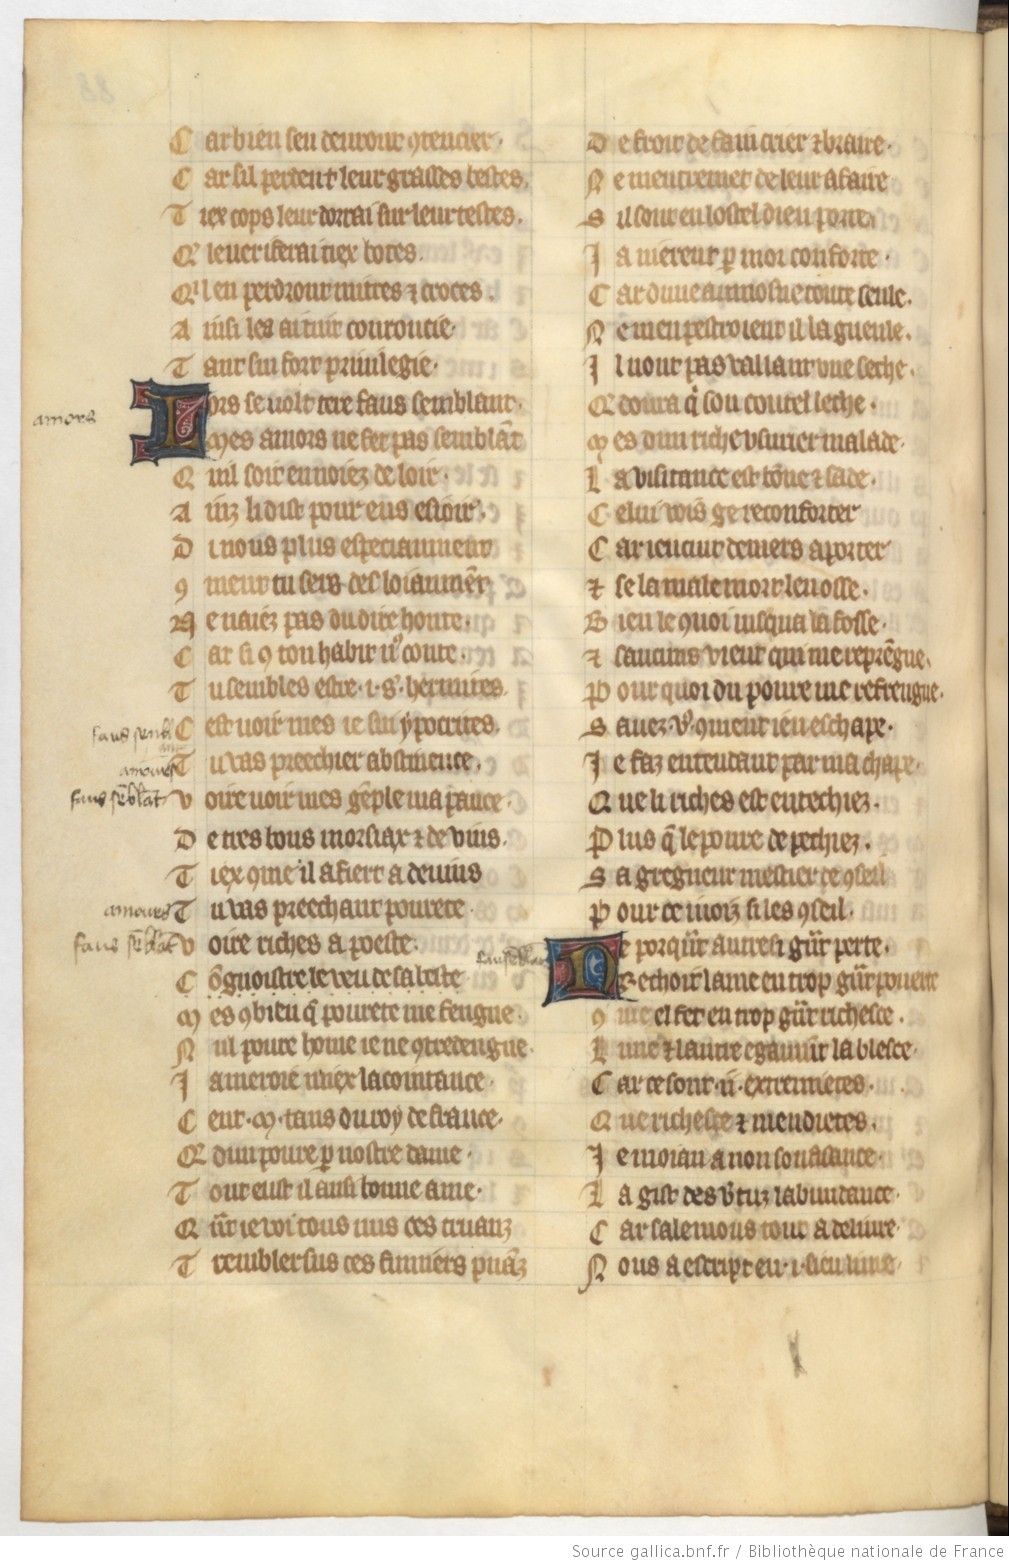 C ar bien seu deuront ꝯtencier·
C ar sil perdent leur grasses bestes.
T iex cops leur dorrai sur leur testes.
Q leuer i ferai tiex boces.
Qͥl en perdront mitres ⁊ croces.
A insi les ai tuit couroucie·
T ant sui fort priuilegie·
amors
L ors se volt tere faus semblant·
Mes amors ne fet pas semblãt
Q uil soit ennoiez de loir·
A inz li dist pour eus esioir·
D i nous plus especiaument
ꝯ ment tu sers desloiaumẽt
N e naiez pas du dire honte·
C ar si ꝯ ton habit nꝰ conte·
T u sembles estre·i·s·hermites.
faus senbl
C est uoir mes ie sui ypocrites.
amours
T u uas preechier abstinence.
faus sẽblãt
V oire uoir mes gẽple ma pance·
D e tres bons morsiax ⁊ de vins.
T iex ꝯme il afiert a deuins
amours
T u uas preechant pourete·
faus sẽblãt
V oire riches a poeste·
C õgnoistre le veu de sa teste
M es ꝯbien q̃ pourete me fengne·
N ul poure home ie ne ꝯtredengne·
J ameroie miex lacointance·
C ent·M·tans du roy de france·
Q dun poure ꝑ nostre dame·
T out eust il ausi bonne ame·
Q ñt ie voi tous nus ces truanz
T rembler sus ces fumiers puãz
D e froit de fain crier ⁊ braire·
N e mentremet de leur afaire
S il sont en lostel dieu porte
J a nierent ꝑ moi conforte·
C ar dune aumosne toute seule.
N e men pestroient il la gueule.
J l nont pas vallant vne seche·
Q dourra q̃ son coutel leche·
M es dun riche vsurier malade·
L a visitance est bõne ⁊ sade·
C elui vois ge reconforter
C ar ien cuit deniers aporter
⁊ se la male mort lenosse.
B ien le ꝯuoi iusqua la fosse·
⁊ saucuns vient qui me reprẽgne.
P our quoi du poure me refrengne·
S auez vꝰ ꝯment ien eschape·
J e faz entendant par ma chape·
Q ue li riches est entechiez.
P lus q̃ le poure de pechiez.
S a gregneur mestier de ꝯseil
P our ce i voiz si les ꝯseil·
faus sẽblãt
N e porqũt autresi gñt perte·
Rechoit lame en trop gñt pouerte
ꝯ me el fet en trop gñt richesce.
L une ⁊ lautre egaumẽt la blesce·
C ar ce sont·ii·extremetes.
Q ue richesce ⁊ mendietes.
J e moian a non souffisance·
L a gist des v̾tuz labundance·
C ar salemons tout a deliure·
N ous a escript en·i·sien liure·
Source gallica.bnf.fr / Bibliothèque nationale de France